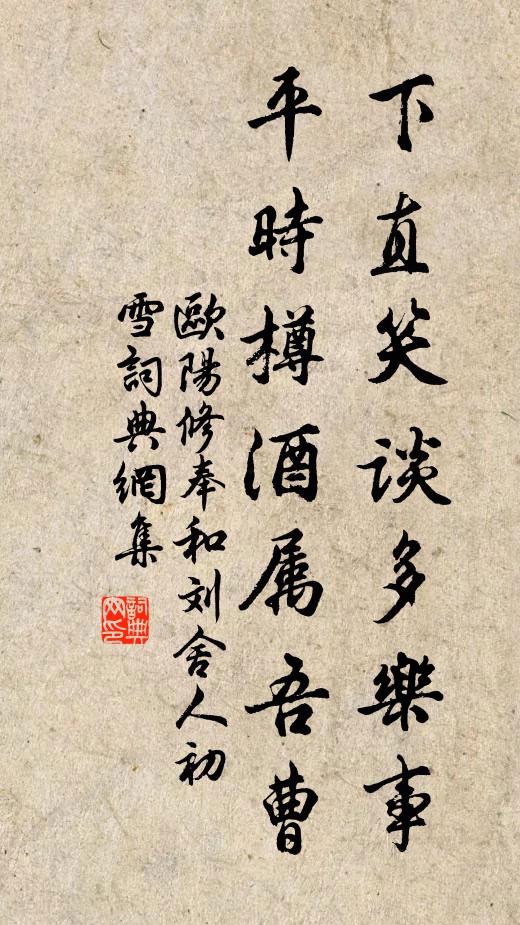 下直笑谈多樂事
平時樽酒属吾曹
歐陽修奉和刘舍人初
雪詞典網集
詞典
网印